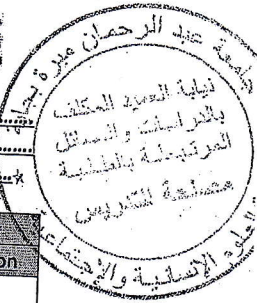 جامعة عبد الرحمان ميرة بجاية
نيابة العميد المكلف
بالدراسات والمسائل
المرتبطة بالطلبة
مصلحة التدريس
العلوم الإنسانية والإجتماعية
on